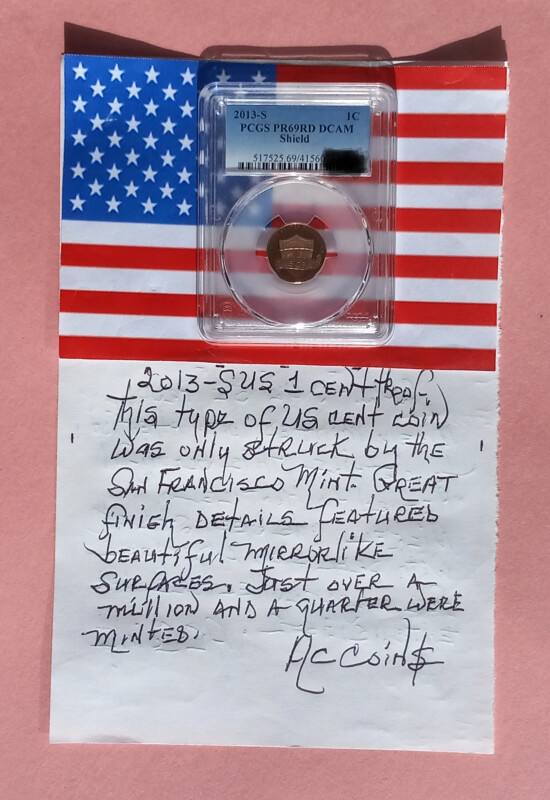 2013-S 1C
PCGS PR69RD DCAM
Shield
517525.69/4156
2013-S US 1 CENT PROOF.
THIS TYPE OF US CENT COIN
WAS ONLY STRUCK by THE
SAN FRANCISCO MINT. GREAT
FINISH DETAILS FEATURED
beautiful MIRRORLIKE
SURFACES. JUST OVER A
MILLION AND A QUARTER WERE
MINTED.
AC COIN$